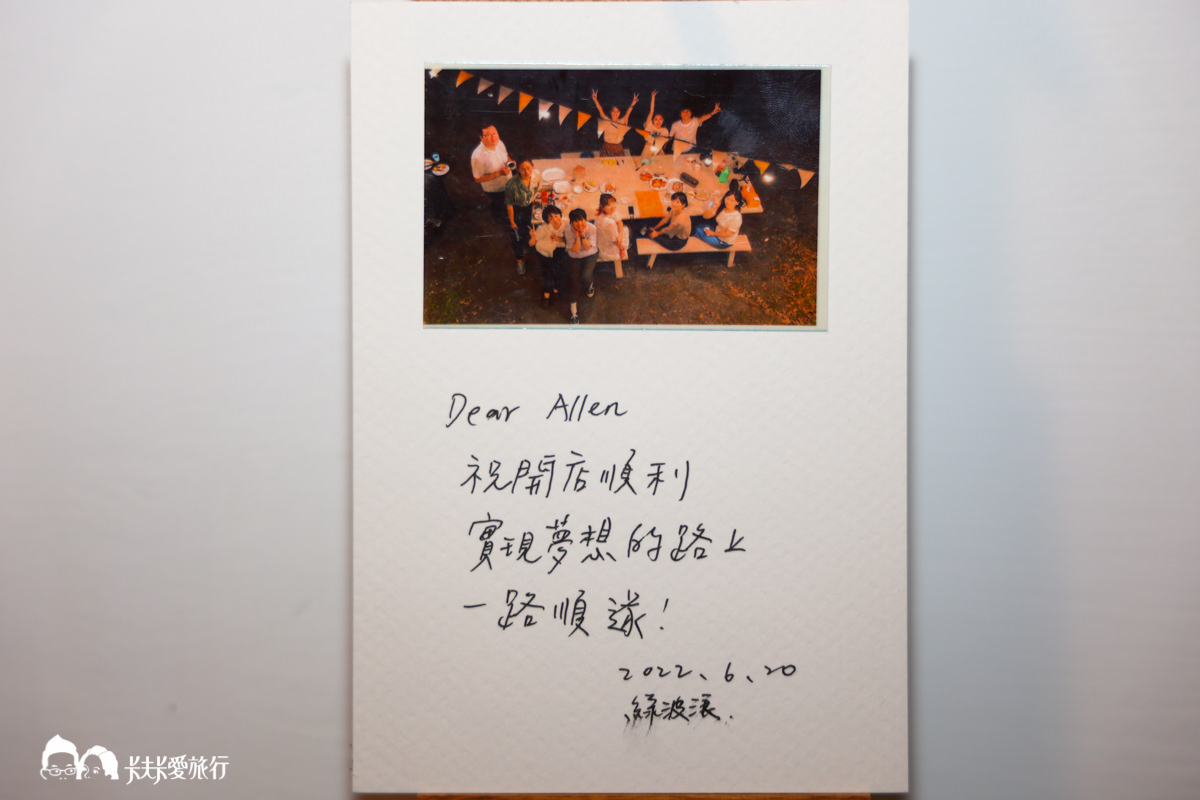 Dear Allen
祝開店順利
實現夢想的路上
一路順遂！
2022、6、20
綠波浪.
卡夫卡愛旅行